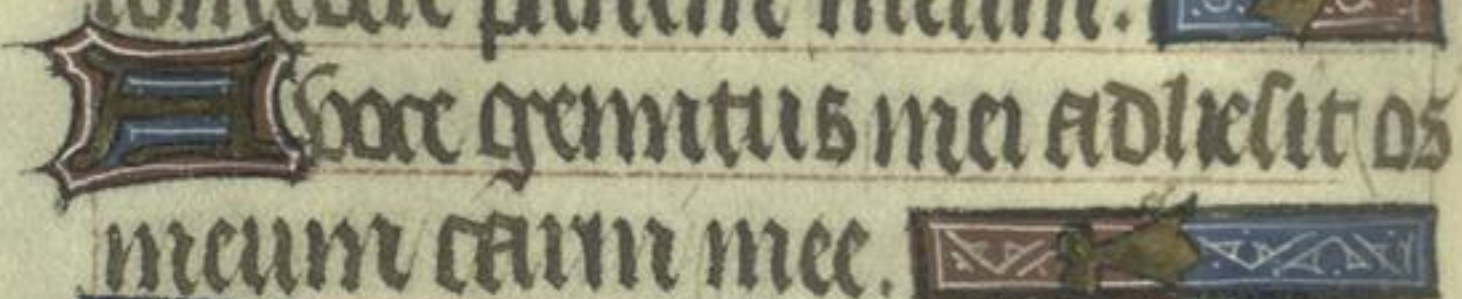 comedere panem meum.
A voce gemitus mei adhesit os
meum carni mee.